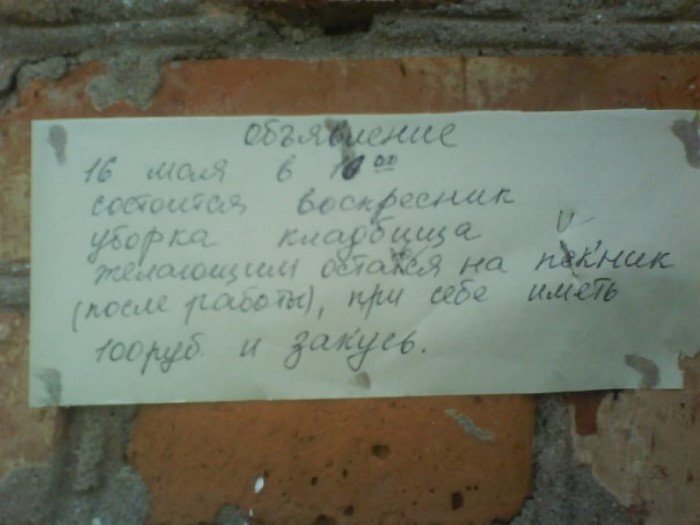 Объявление
16 мая в 10 00
состоится воскресник
уборка кладбища
желающим остатся на пикник
(после работы), при себе иметь
100 руб. и закусь.